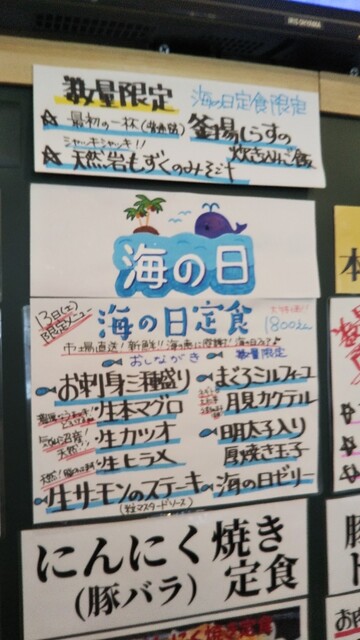 数量限定 海の日定食限定
☆最初の一杯 釜揚しらすの
炊き込みご飯
シャッキシャキ!!
☆天然岩もずくのみそ汁
海の日
限定メニュー
海の日定食
1800えん
市場直送!新鮮!!海の恵に感謝!
おしながき 数量限定
お刺身三種盛り
生本マグロ
生カツオ
生ヒラメ
生サーモンのステーキ
(粒マスタードソース)
まぐろミルフィーユ
月見カクテル
明太子入り
厚焼き玉子
海の日ゼリー
にんにく焼き
(豚バラ) 定食